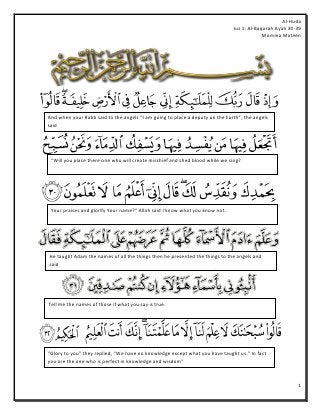 Al-Huda
Juz 1: Al-Baqarah Ayah 30-39
Momina Mateen
بِسْمِ ٱللَّهِ ٱلرَّحْمَٰنِ ٱلرَّحِيمِ
وَإِذْ قَالَ رَبُّكَ لِلْمَلَٰٓئِكَةِ إِنِّى جَاعِلٌ فِى ٱلْأَرْضِ خَلِيفَةً ۖ قَالُوٓا۟
And when your Rabb said to the angels "I am going to place a deputy on the Earth", the angels
said
أَتَجْعَلُ فِيهَا مَن يُفْسِدُ فِيهَا وَيَسْفِكُ ٱلدِّمَآءَ وَنَحْنُ نُسَبِّحُ
"Will you place there one who will create mischief and shed blood while we sing?
بِحَمْدِكَ وَنُقَدِّسُ لَكَ ۖ قَالَ إِنِّىٓ أَعْلَمُ مَا لَا تَعْلَمُونَ ٣٠
Your praises and glorify Your name?" Allah said I know what you know not.
وَعَلَّمَ ءَادَمَ ٱلْأَسْمَآءَ كُلَّهَا ثُمَّ عَرَضَهُمْ عَلَى ٱلْمَلَٰٓئِكَةِ فَقَالَ
He taught Adam the names of all the things then he presented the things to the angels and
said
أَنۢبِـُٔونِى بِأَسْمَآءِ هَٰٓؤُلَآءِ إِن كُنتُمْ صَٰدِقِينَ ٣١
Tell me the names of those if what you say is true.
قَالُوا۟ سُبْحَٰنَكَ لَا عِلْمَ لَنَآ إِلَّا مَا عَلَّمْتَنَآ ۖ إِنَّكَ أَنتَ ٱلْعَلِيمُ ٱلْحَكِيمُ ٣٢
"Glory to you" they replied, "We have no knowledge except what you have taught us." In fact
you are the one who is perfect in knowledge and wisdom"
1